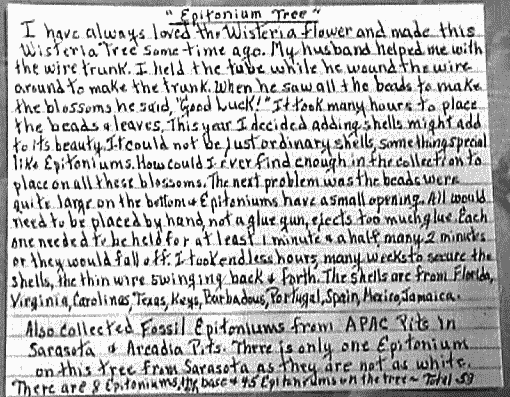 "Epitonium Tree"
I have always loved the Wisteria flower and made this
Wisteria Tree some time ago. My husband helped me with
the wire trunk. I held the tube while he wound the wire
around to make the trunk. When he saw all the beads to make
the blossoms he said, "Good Luck!" It took many hours to place
the beads & leaves. This year I decided adding shells might add
to its beauty. It could not be just ordinary shells, something special
like Epitoniums. How could I ever find enough in the collection to
place on all these blossoms. The next problem was the beads were
quite large on the bottom & Epitoniums have a small opening. All would
need to be placed by hand, not a glue gun, ejects too much glue. Each
one needed to be held for at least 1 minute & a half, many 2 minutes
or they would fall off. I took endless hours, many weeks to secure the
shells, the thin wire swinging back & forth. The shells are from Florida,
Virginia, Carolinas, Texas, Keys, Barbadous, Portugal, Spain, Mexico, Jamaica.
Also collected Fossil Epitoniums from APAC Pits in
Sarasota & Arcadia Pits. There is only one Epitonium
on this tree from Sarasota as they are not as white.
There are 8 Epitoniums, base & 45 Epitoniums on the tree ~ Total 53